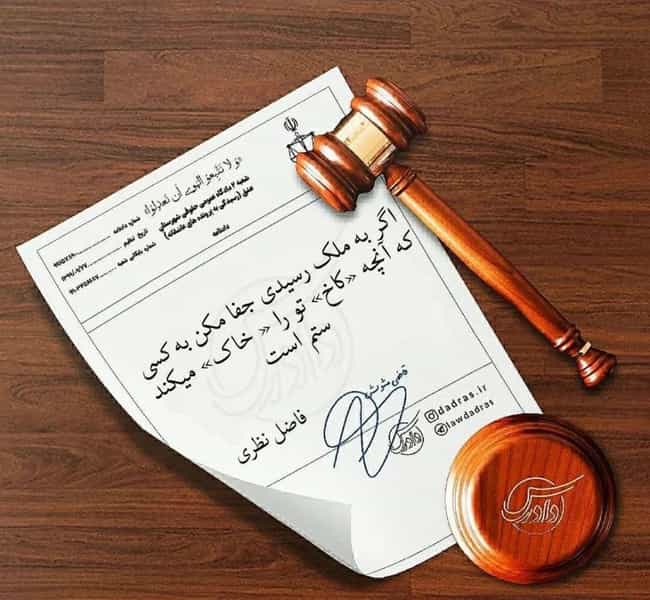 «و لا تتبعوا الهوی أن تعدلوا»
شعبه ۲ دادگاه عمومی حقوقی شهرستان
عشق (رسیدگی به پرونده های عاشقانه)
دادنامه
شماره دادنامه
تاریخ تنظیم
شماره بایگانی شعبه
اگر به ملک رسیدی جفا مکن به کسی
که آنچه «کاخ» تو را «خاک» میکند
ستم است
فاضل نظری
dadras.ir
lawdadras
دادرس